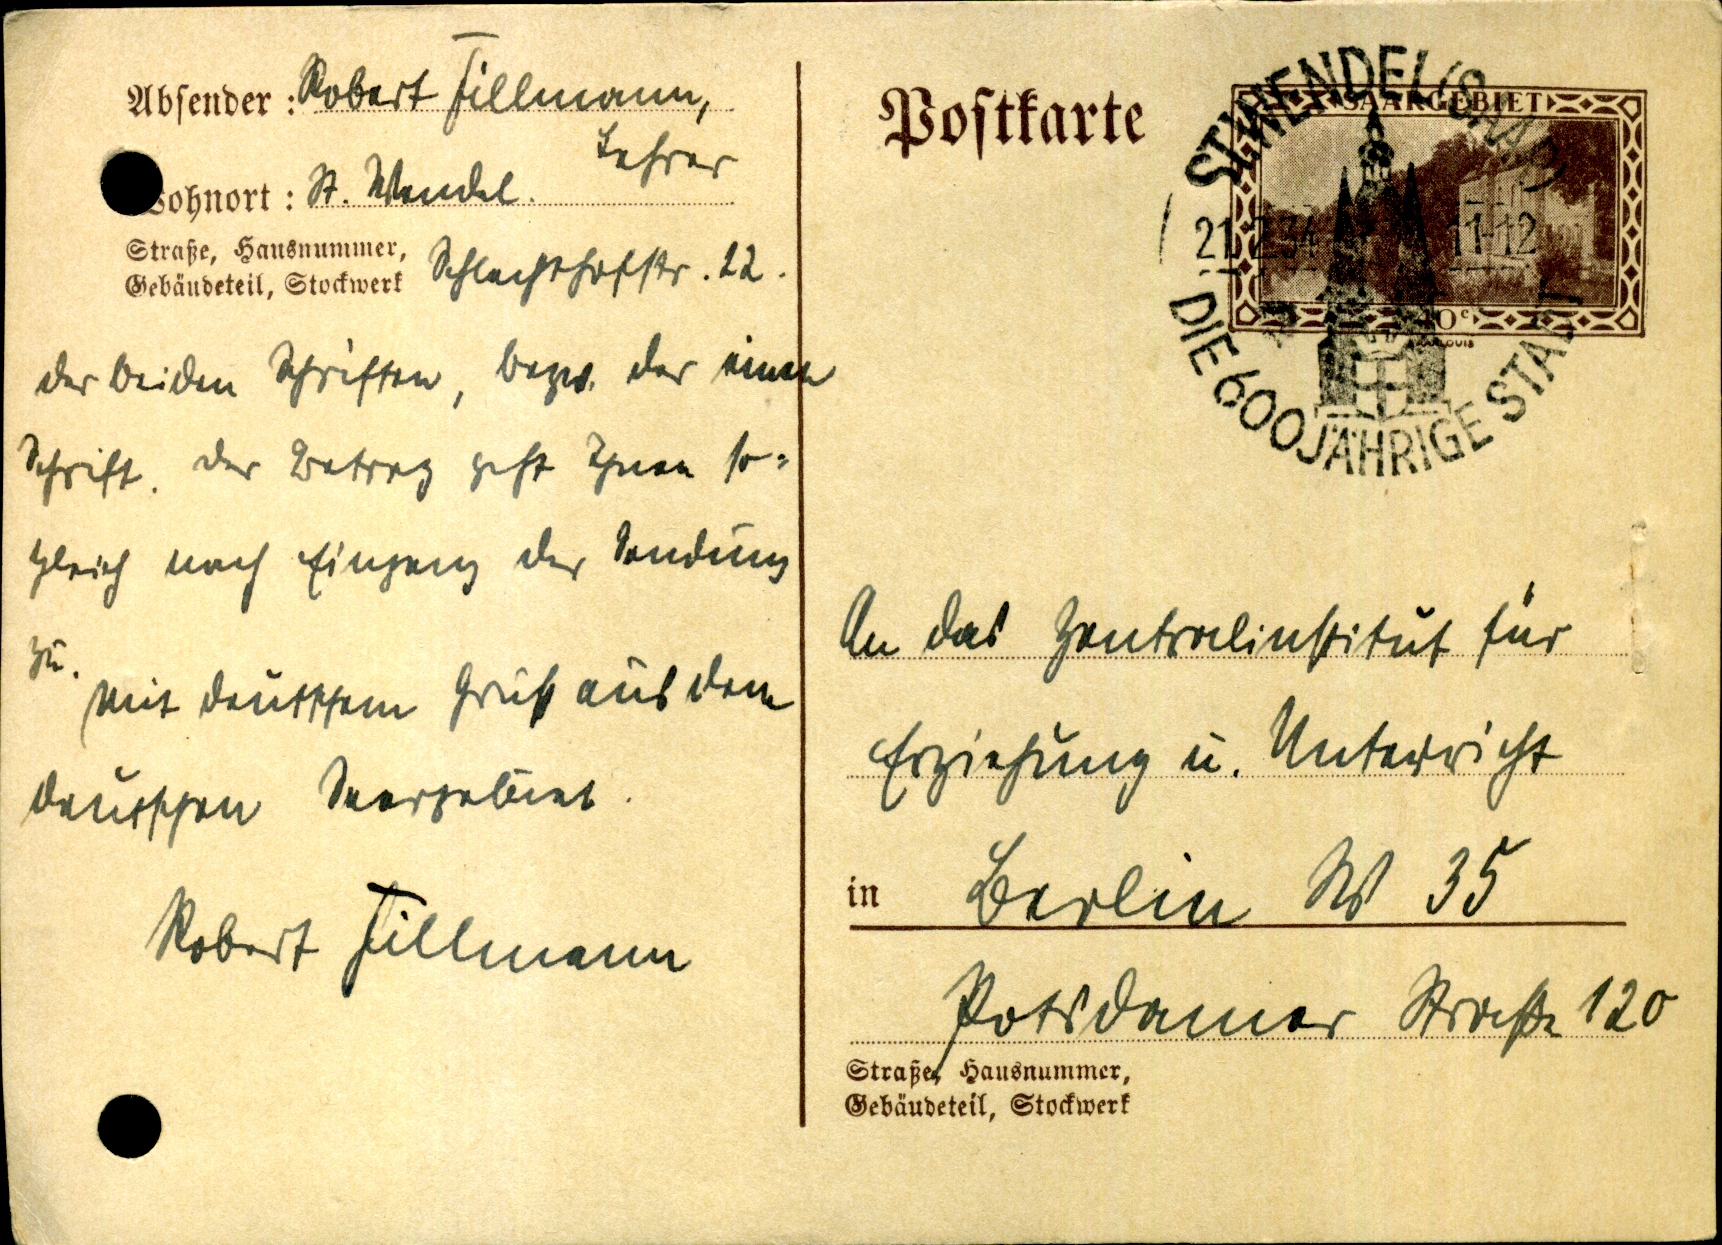 Absender : Robert Tillmann,
Lehrer
Wohnort : St. Wendel.
Straße, Hausnummer,
Gebäudeteil, Stockwerk
Schlachthofstr. 22.
der beiden Schriften, bezw. der einen
Schrift. Der Betrag geht Ihnen so=
gleich nach Eingang der Sendung
zu.
Mit deutschem Gruß aus dem
deutschen Saargebiet.
Robert Tillmann
Postkarte
SAARGEBIET
ST. WENDEL (SAAR)
21.2.34 11-12
DIE 600JÄHRIGE STADT
An das Zentralinstitut für
Erziehung u. Unterricht
in Berlin W 35
Potsdamer Straße 120
Straße, Hausnummer,
Gebäudeteil, Stockwerk